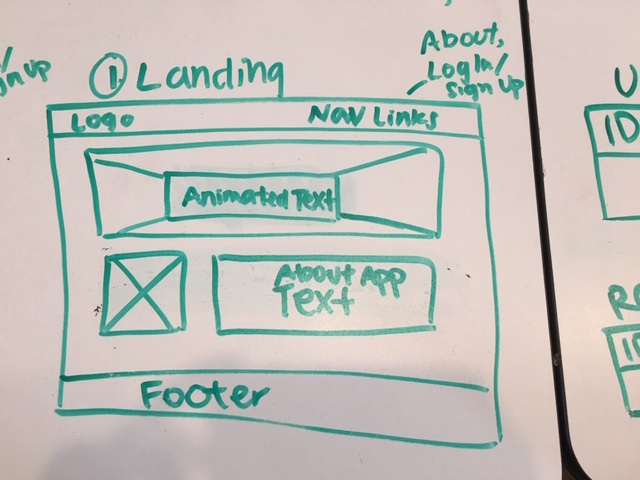 ① Landing
About,
Log In/
Sign Up
Logo
Nav Links
Animated Text
About App
Text
Footer
ID